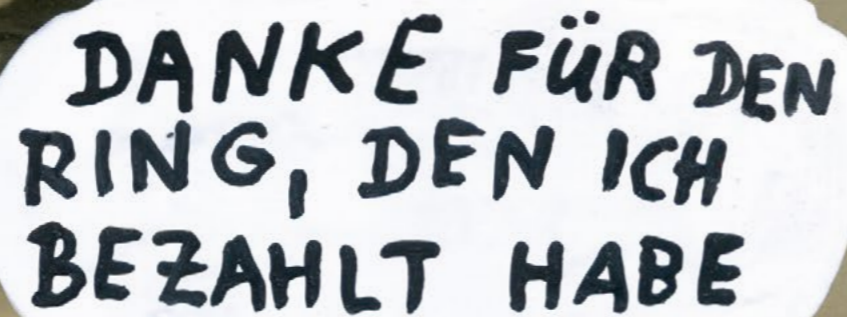 DANKE FÜR DEN
RING, DEN ICH
BEZAHLT HABE